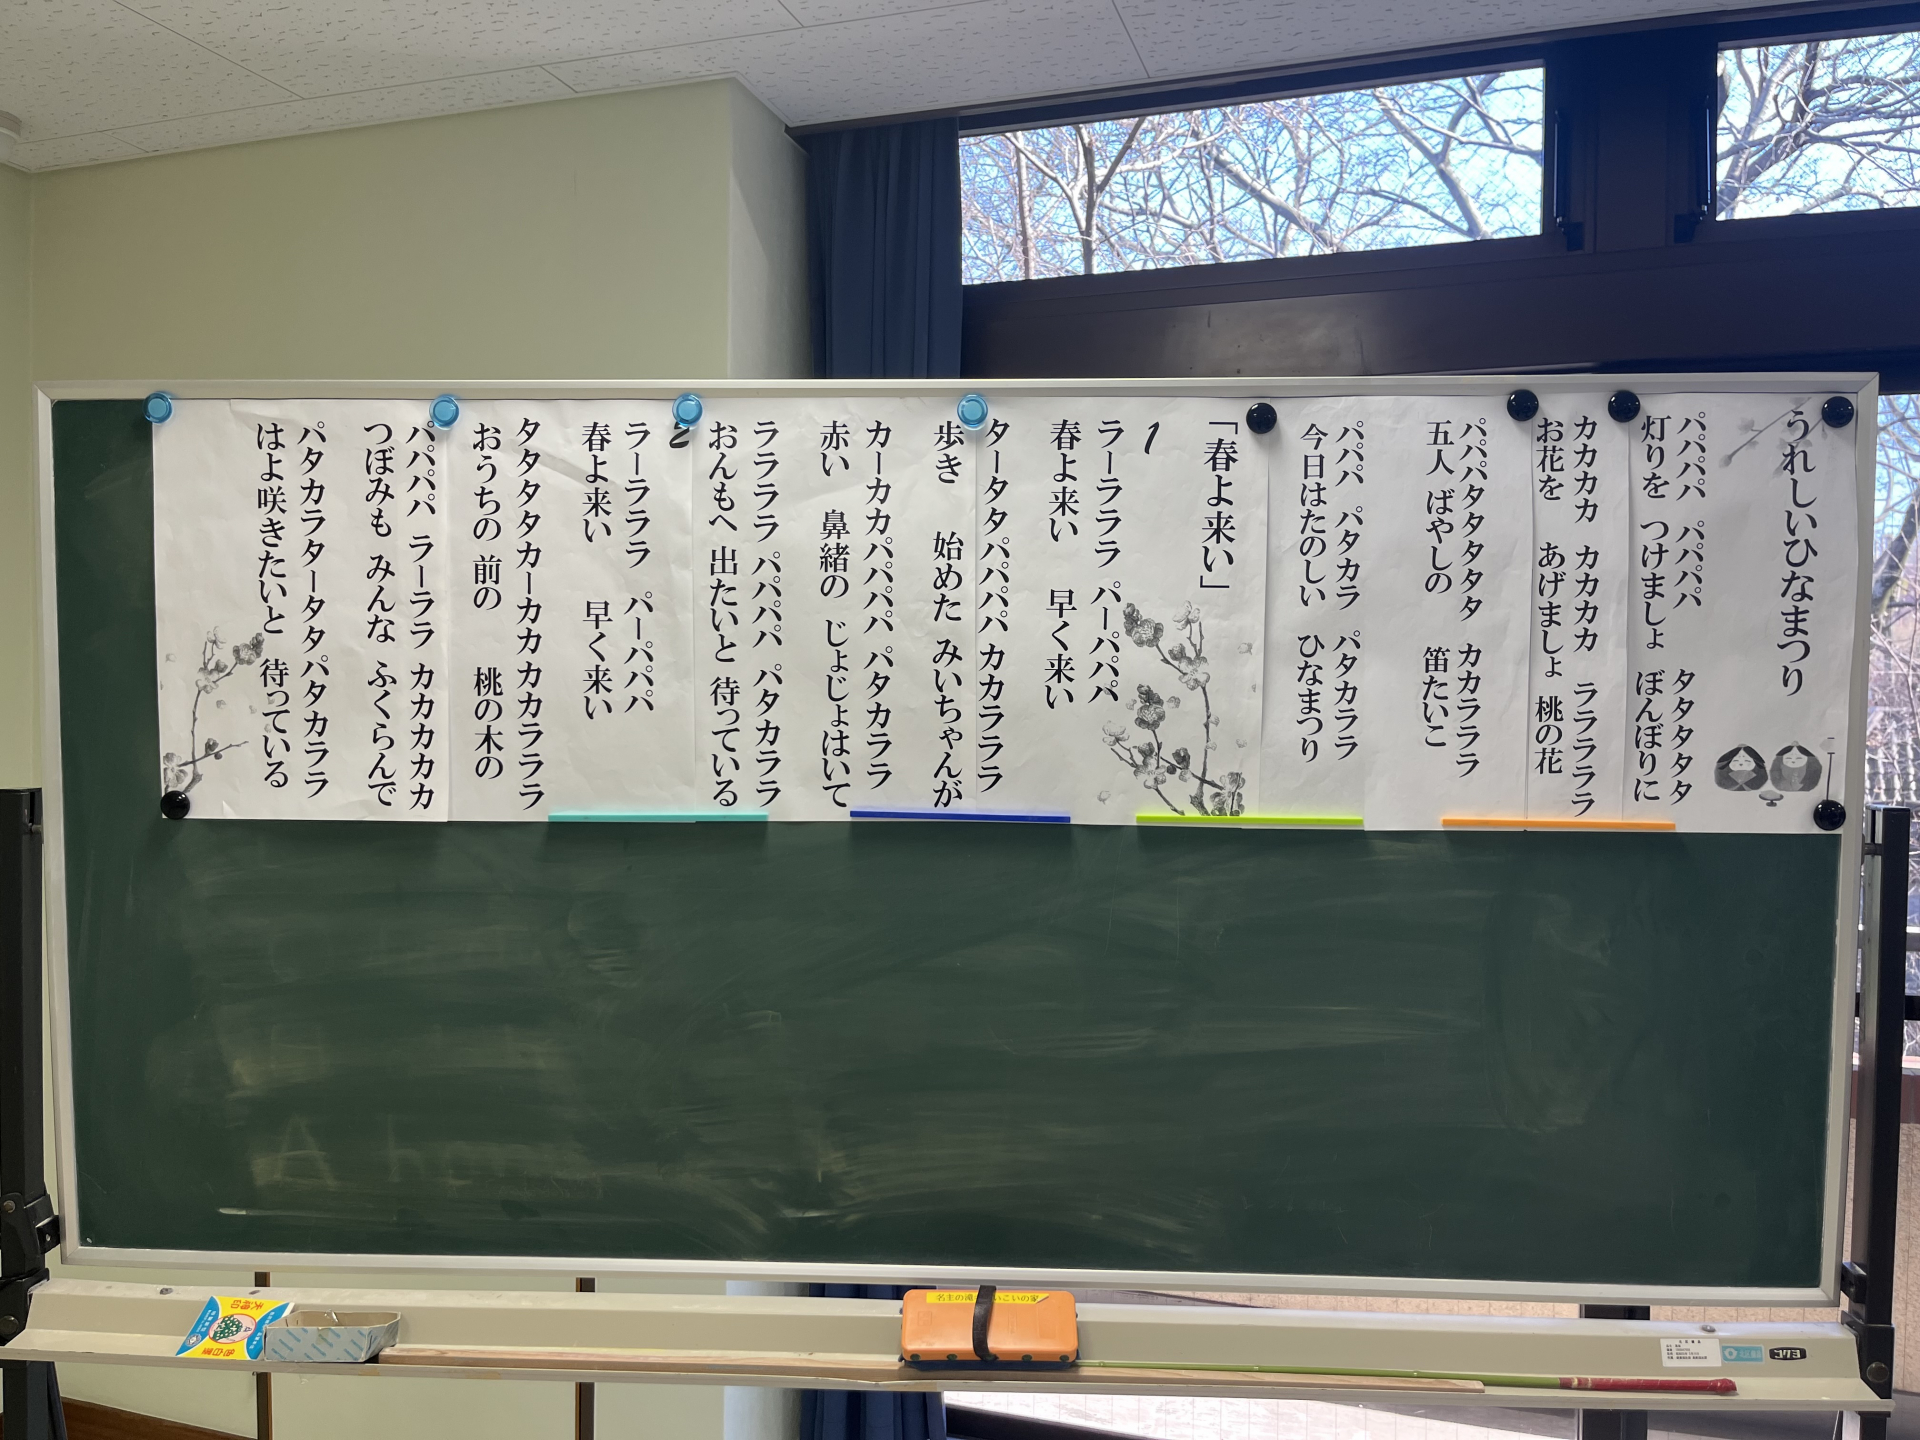 うれしいひなまつり
パパパパ パパパパ タタタタタ
灯りを つけましょ ぼんぼりに
カカカカ カカカカ ラララララ
お花を あげましょ 桃の花
パパパタタタタタ カカラララ
五人 ばやしの 笛たいこ
パパパ パタカラ パタカララ
今日はたのしい ひなまつり
「春よ来い」
1
ラーラララ パーパパパ
春よ来い 早く来い
タータタパパパパ カカラララ
歩き 始めた みいちゃんが
カーカカパパパパ パタカララ
赤い 鼻緒の じょじょはいて
ララララ パパパパ パタカララ
おんもへ 出たいと 待っている
2
ラーラララ パーパパパ
春よ来い 早く来い
タタタタカーカカ カカラララ
おうちの 前の 桃の木の
パパパパ ラーララ カカカカカ
つぼみも みんな ふくらんで
パタカラタータタ パタカララ
はよ咲きたいと 待っている
天神印
名主の滝 いこいの家
コクヨ